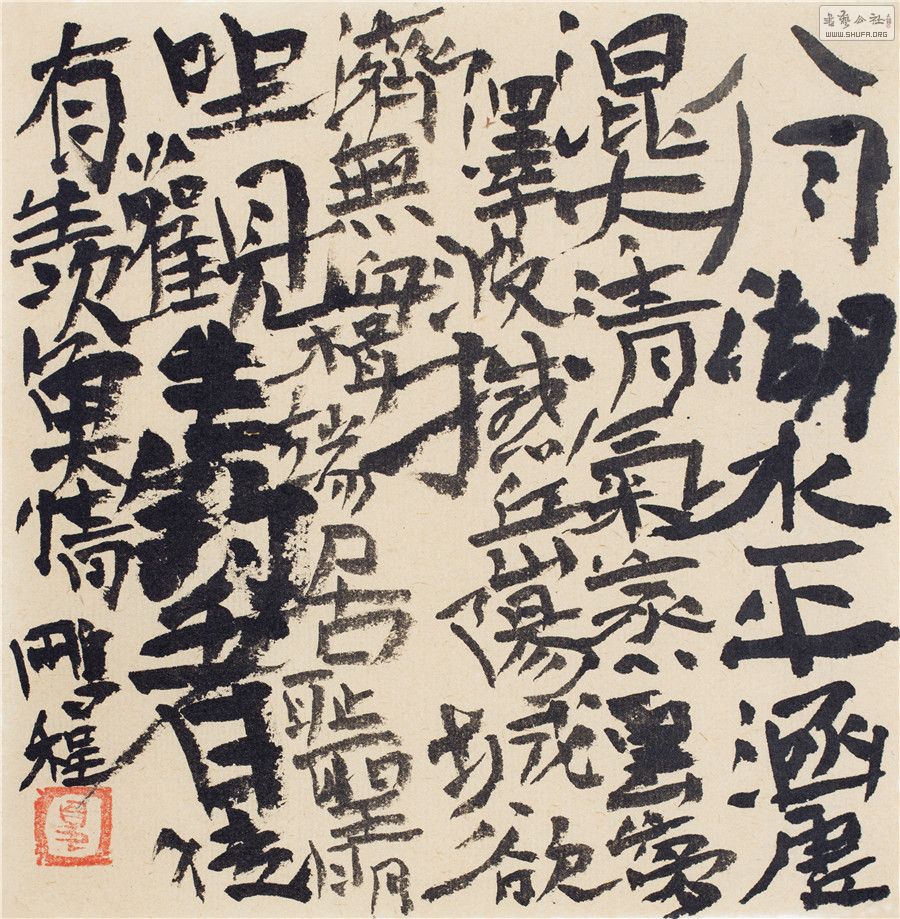 八月湖水平涵虛
混太清氣蒸雲夢
澤波撼岳陽城欲
濟無舟楫端居恥聖明
坐觀垂釣者徒
有羨魚情
鵬程
書藝公社
WWW.SHUFA.ORG